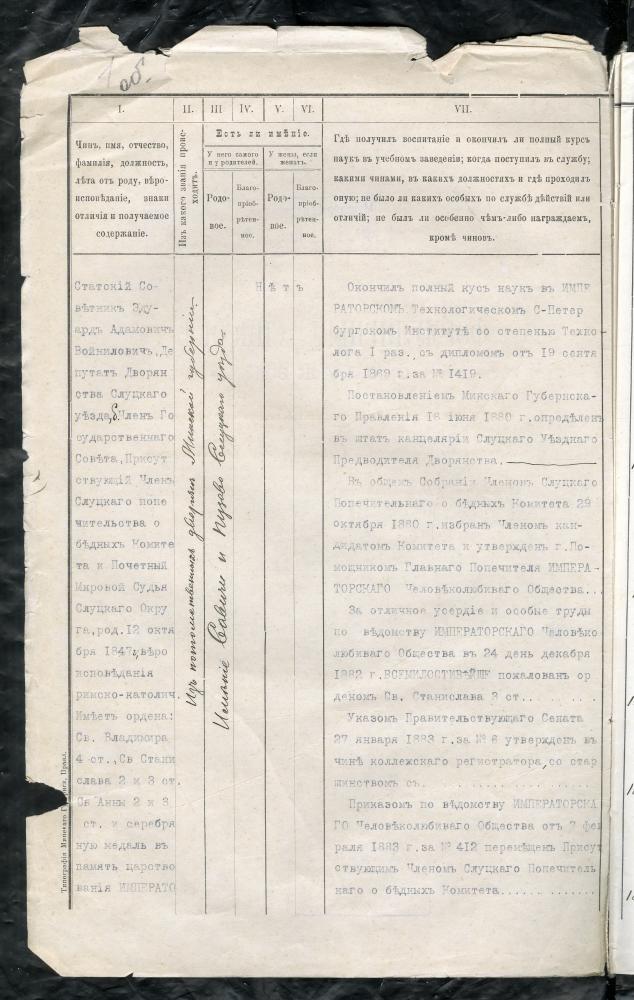 об.
I.
II.
III
IV.
V.
VI.
VII.
Чинъ, имя, отчество,
фамилія, должность,
лѣта отъ роду, вѣро-
исповѣданіе, знаки
отличія и получаемое
содержаніе.
Изъ какого званія проис-
ходитъ.
Есть ли имѣніе.
У него самого
и у родителей.
У жены, если
женатъ.
Родо-
вое.
Благо-
пріоб-
рѣтен-
ное.
Родо-
вое.
Благо-
пріоб-
рѣтен-
ное.
Гдѣ получилъ воспитаніе и окончилъ ли полный курсъ
наукъ въ учебномъ заведеніи; когда поступилъ въ службу;
какими чинами, въ какихъ должностяхъ и гдѣ проходилъ
оную; не было ли какихъ особыхъ по службѣ дѣйствій или
отличій; не былъ ли особенно чѣмъ-либо награждаемъ,
кромѣ чиновъ.
Статскій Со-
вѣтникъ Эду-
ардъ Адамовичъ
Войниловичъ, Де
путатъ Дворян
ства Слуцкаго
уѣзда, б. Членъ Го
сударственнаго
Совѣта, Присут
ствующій Членъ
Слуцкаго попе
чительства о
бѣдныхъ Комите
та и Почетный
Мировой Судья
Слуцкаго Окру
га, род. 12 октя
бря 1847, вѣро
исповѣданія
римско-католич.
Имѣетъ ордена:
Св. Владимира
4 ст., Св Стани
слава 2 и 3 ст.
Св Анны 2 и 3
ст. и серебря
ную медаль въ
память царство
ванія ИМПЕРАТО
Изъ потомственныхъ дворянъ Минской губерніи.
Имѣніе Савичи и Пузово Слуцкаго уѣзда.
Нѣтъ
Окончилъ полный кусъ наукъ въ ИМПЕ
РАТОРСКОМЪ Технологическомъ С-Петер
бургскомъ Институтѣ со степенью Техно
лога I раз., съ дипломомъ отъ 19 сентя
бря 1869 г. за № 1419.
Постановленіемъ Минскаго Губернска-
го Правленія 18 іюня 1880 г. опредѣленъ
въ штатъ канцеляріи Слуцкаго Уѣзднаго
Предводителя Дворянства.
Въ общемъ Собраніи Членомъ Слуцкаго
Попечительнаго о бѣдныхъ Комитета 29
октября 1880 г. избранъ Членомъ кан-
дидатомъ Комитета и утвержденъ г. По-
мощникомъ Главнаго Попечителя ИМПЕРА-
ТОРСКАГО Человѣколюбиваго Общества...
За отличное усердіе и особые труды
по вѣдомству ИМПЕРАТОРСКАГО Человѣко
любиваго Общества въ 24 день декабря
1882 г. ВСЕМИЛОСТИВѢЙШЕ пожалованъ ор
деномъ Св. Станислава 3 ст.....
Указомъ Правительствующаго Сената
27 января 1883 г. за № 6 утвержденъ въ
чинѣ коллежскаго регистратора, со стар
шинствомъ съ.
Приказомъ по вѣдомству ИМПЕРАТОРСКА
ГО Человѣколюбиваго Общества отъ 7 фев
раля 1883 г. за № 412 перемѣщенъ Присут
ствующимъ Членомъ Слуцкаго Попечитель
наго о бѣдныхъ Комитета............
Типографія Минскаго Губернск. Правл.